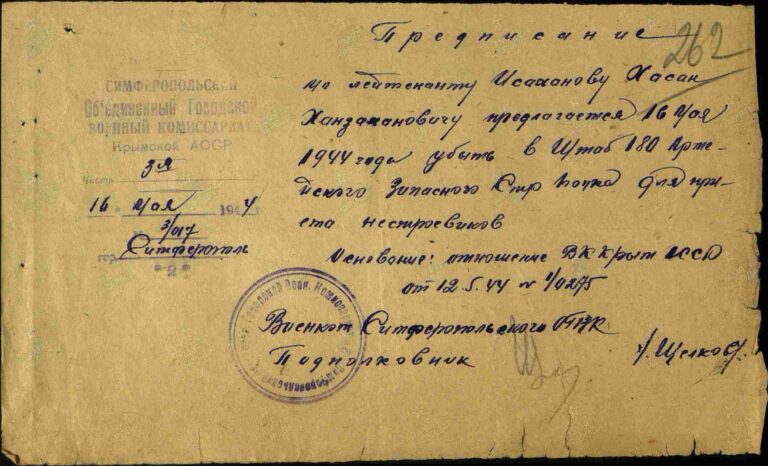 Предписание
262
СИМФЕРОПОЛЬСКИЙ
Объединенный Городской
ВОЕННЫЙ КОМИССАРИАТ
Крымской АССР
Часть 3я
16 Мая 1944
№ 3/017
гор. Симферополь
"2"
Мл лейтенанту Исаханову Хасан
Ханзахановичу предлагается 16 Мая
1944 года убыть в Штаб 180 Арме-
йского Запасного Стр Полка для при-
ема нестроевиков
Основание: отношение ВК Крым АССР
от 12.5.44 № 1/0275
Военком Симферопольского ОГВК
Подполковник /Щелков/